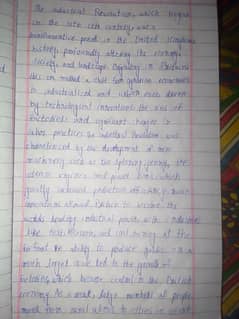 The industrial Revolution, which began
in the late 18th century, was a
transformative period in the United Kingdom's
history, profoundly altering the economy,
society, and landscape. Beginning in
this era marked a shift from agrarian economies
to industrialized and urban ones driven
by technological innovations, the rise of
factories and significant changes in
labor practices. The industrial Revolution was
characterized by the development of new
machinery such as the spinning jenny, the
steam engine, and power loom which
greatly increased production efficiency.
allowed Britain to become the
world's leading industrial power with industries
like textiles, iron, and coal mining at the
forefront. The ability to produce goods on a
much larger scale led to the growth of
factories, which became central to the British
economy. As a result, large numbers of people
moved from rural areas to cities in search